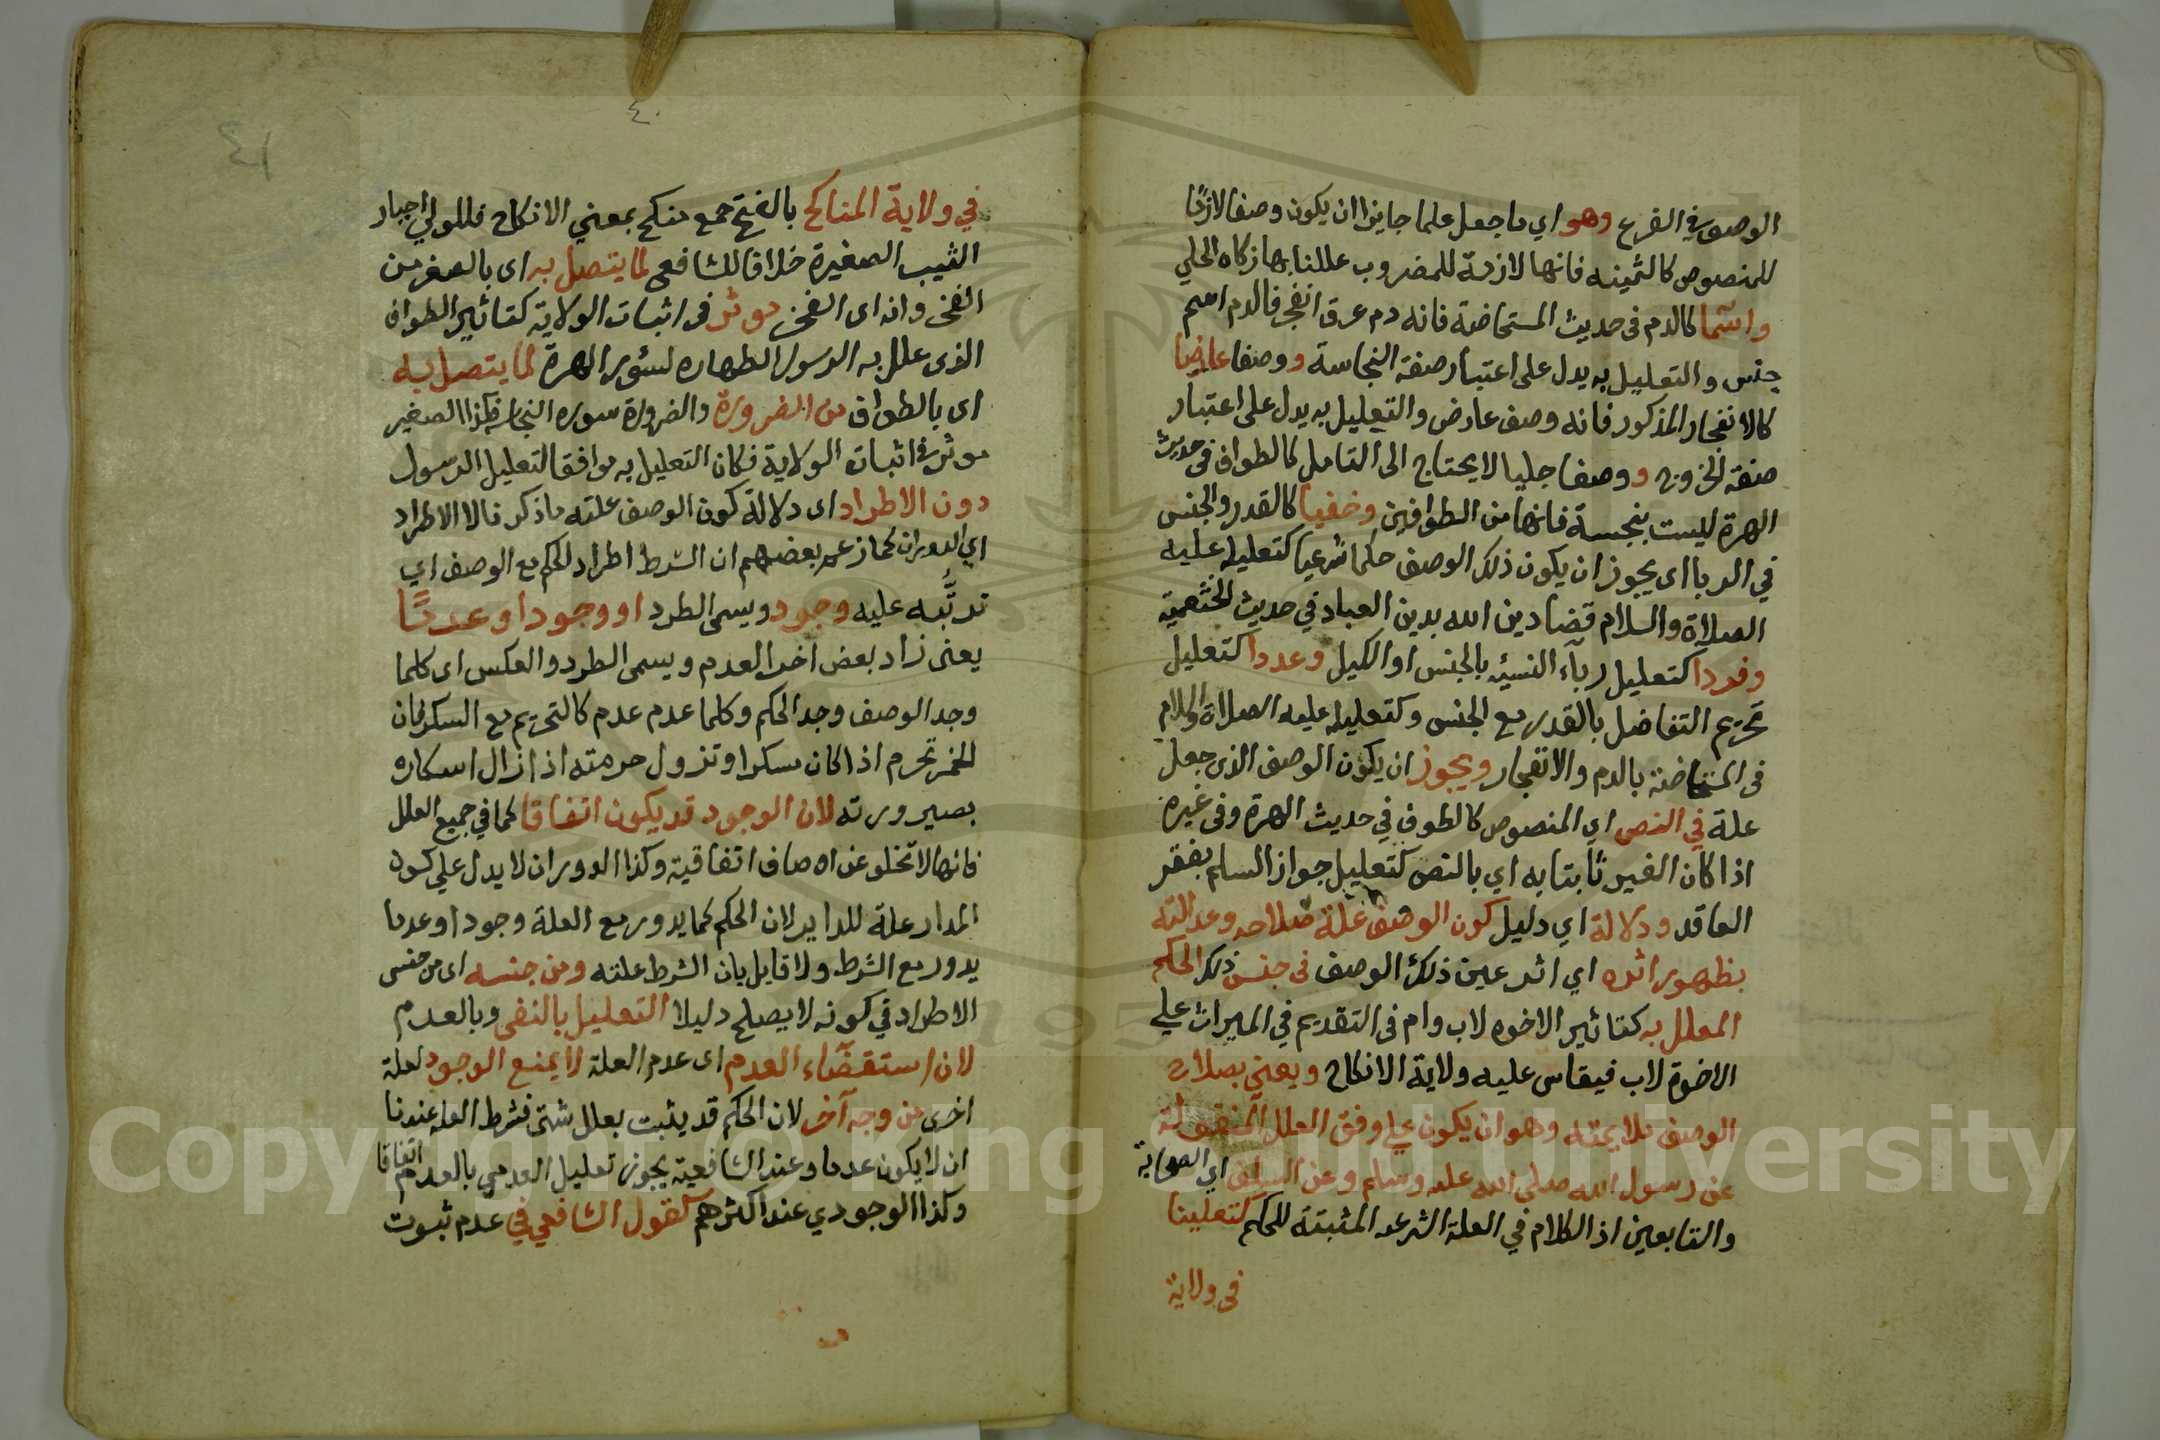 الوصف في الفرع وهو اي ما جعل علما جايز ان يكون وصفا لازمًا
للمنصوص كالثمينه فانها لازمة للمضروب عللنا بها زكاه الحلي
واسما كالدم فى حديث المستحاضة فانه دم عرق انفجر فالدم اسم
جنس والتعليل به يدل على اعتبار صفة النجاسة ووصفا عارضيا
كالانفجار المذكور فانه وصف عارض والتعليل به يدل على اعتبار
صفة الخروج ووصفا جليا لا يحتاج الى التامل كالطواف فى حديث
الهرة ليست بنجسة فانها من الطوافين وخفيا كالقدر والجنس
في الربا اى يجوز ان يكون ذلك الوصف حكما شرعيا كتعليله عليه
الصلاة والسلام قضا دين الله بدين العباد في حديث الخثعمية
وفردا كتعليل ربآء النسيئه بالجنس او الكيل وعددا كتعليل
تحريم التفاضل بالقدر مع الجنس وكتعليله عليه الصلاة والسلام
فى المستحاضة بالدم والانفجار ويجوز ان يكون الوصف الذى جعل
علة في النص اي المنصوص كالطوف في حديث الهرة وفى غيره
اذا كان الغير ثابتا به اي بالنص كتعليل جواز السلم بفقر
العاقد ودلالة اي دليل كون الوصف علة صلاحه وعدالته
بظهور اثره اي اثر عين ذلك الوصف فى جنس ذلك الحكم
المعلل به كتاثير الاخوه لاب وام فى التقديم في الميراث علي
الاخوة لاب فيقاس عليه ولاية الانكاح ويعني بصلاح
الوصف ملايمته وهو ان يكون علي وفق العلل المنقولة
عن رسول الله صلى الله عليه وسلم وعن السلف اي الصحابة
والتابعين اذ الكلام في العلة الشرعيه المثبتة للحكم كتعلينا
فى ولاية
٤٠
٤١
في ولاية المناكح بالفتح جمع منكح بمعني الانكاح فللولي اجبار
الثيب الصغيرة خلافا للشافعى لما يتصل به اى بالصغر من
العجز وانه اى العجز موثر فى اثبات الولاية كتاثير الطواف
الذى علل به الرسول الطهاره لسؤر الهرة لما يتصل به
اى بالطواف من الضرورة والضرورة سوره النجاسة فكذا الصغير
موثر في اثبات الولاية فكان التعليل به موافقا لتعليل الرسول
دون الاطراد اى دلالة كون الوصف علته ما ذكرنا لا الاطراد
اي الدوران كما زعم بعضهم ان الشرط اطراد الحكم مع الوصف اي
ترتُّبه عليه وجود ويسمى الطرد او وجودا وعدمًا
يعنى زاد بعض اخر العدم ويسمى الطرد والعكس اى كلما
وجد الوصف وجد الحكم وكلما عدم عدم كالتحريم مع السكر فان
الخمر تحرم اذا كان مسكرا وتزول حرمته اذا زال اسكاره
بصيرورته لان الوجود قد يكون اتفاقا كما في جميع العلل
فانها لا تخلو عن اوصاف اتفاقية وكذا الدوران لا يدل علي كون
المدار علة للداير لان الحكم كما يدور مع العلة وجودا وعدما
يدور مع الشرط ولا قايل بان الشرط علته ومن جنسه اى من جنس
الاطراد في كونه لا يصلح دليلا التعليل بالنفى وبالعدم
لان استقضآء العدم اى عدم العلة لا يمنع الوجود لعلة
اخرى من وجه آخر لان الحكم قد يثبت بعلل شتى فشرط العله عندنا
ان لا يكون عدما وعند الشافعية يجوز تعليل العدمي بالعدم اتفاقا
وكذا الوجودي عند اكثرهم كقول الشافعي في عدم ثبوت
Copyright © King Saud University